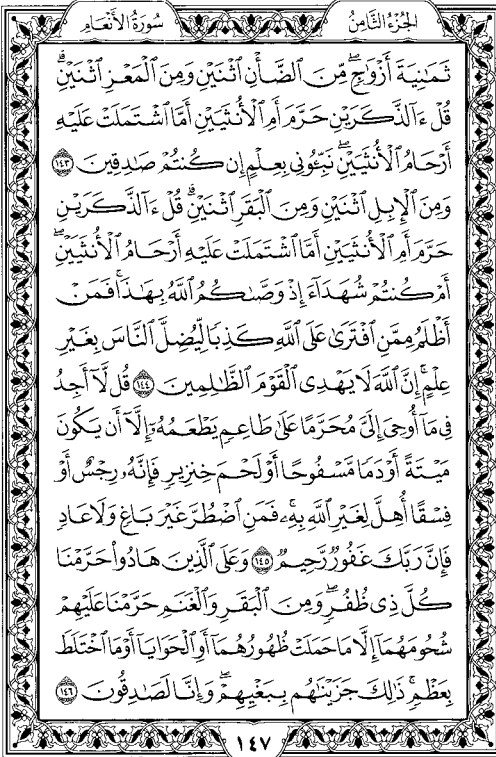 سُورَةُ الأَنْعَام
الجُزْءُ الثَّامِنُ
ثَمَٰنِيَةَ أَزْوَٰجٍۖ مِّنَ ٱلضَّأْنِ ٱثْنَيْنِ وَمِنَ ٱلْمَعْزِ ٱثْنَيْنِۗ
قُلْ ءَآلذَّكَرَيْنِ حَرَّمَ أَمِ ٱلْأُنثَيَيْنِ أَمَّا ٱشْتَمَلَتْ عَلَيْهِ
أَرْحَامُ ٱلْأُنثَيَيْنِۖ نَبِّـُٔونِى بِعِلْمٍ إِن كُنتُمْ صَٰدِقِينَ ١٤٣
وَمِنَ ٱلْإِبِلِ ٱثْنَيْنِ وَمِنَ ٱلْبَقَرِ ٱثْنَيْنِۗ قُلْ ءَآلذَّكَرَيْنِ
حَرَّمَ أَمِ ٱلْأُنثَيَيْنِ أَمَّا ٱشْتَمَلَتْ عَلَيْهِ أَرْحَامُ ٱلْأُنثَيَيْنِۖ
أَمْ كُنتُمْ شُهَدَآءَ إِذْ وَصَّىٰكُمُ ٱللَّهُ بِهَٰذَاۚ فَمَنْ
أَظْلَمُ مِمَّنِ ٱفْتَرَىٰ عَلَى ٱللَّهِ كَذِبًا لِّيُضِلَّ ٱلنَّاسَ بِغَيْرِ
عِلْمٍۚ إِنَّ ٱللَّهَ لَا يَهْدِى ٱلْقَوْمَ ٱلظَّٰلِمِينَ ١٤٤ قُل لَّآ أَجِدُ
فِى مَآ أُوحِىَ إِلَىَّ مُحَرَّمًا عَلَىٰ طَاعِمٍ يَطْعَمُهُۥٓ إِلَّآ أَن يَكُونَ
مَيْتَةً أَوْ دَمًا مَّسْفُوحًا أَوْ لَحْمَ خِنزِيرٍ فَإِنَّهُۥ رِجْسٌ أَوْ
فِسْقًا أُهِلَّ لِغَيْرِ ٱللَّهِ بِهِۦۚ فَمَنِ ٱضْطُرَّ غَيْرَ بَاغٍ وَلَا عَادٍ
فَإِنَّ رَبَّكَ غَفُورٌ رَّحِيمٌ ١٤٥ وَعَلَى ٱلَّذِينَ هَادُوا۟ حَرَّمْنَا
كُلَّ ذِى ظُفُرٍۖ وَمِنَ ٱلْبَقَرِ وَٱلْغَنَمِ حَرَّمْنَا عَلَيْهِمْ
شُحُومَهُمَآ إِلَّا مَا حَمَلَتْ ظُهُورُهُمَآ أَوِ ٱلْحَوَايَآ أَوْ مَا ٱخْتَلَطَ
بِعَظْمٍۚ ذَٰلِكَ جَزَيْنَٰهُم بِبَغْيِهِمْۖ وَإِنَّا لَصَٰدِقُونَ ١٤٦
١٤٧